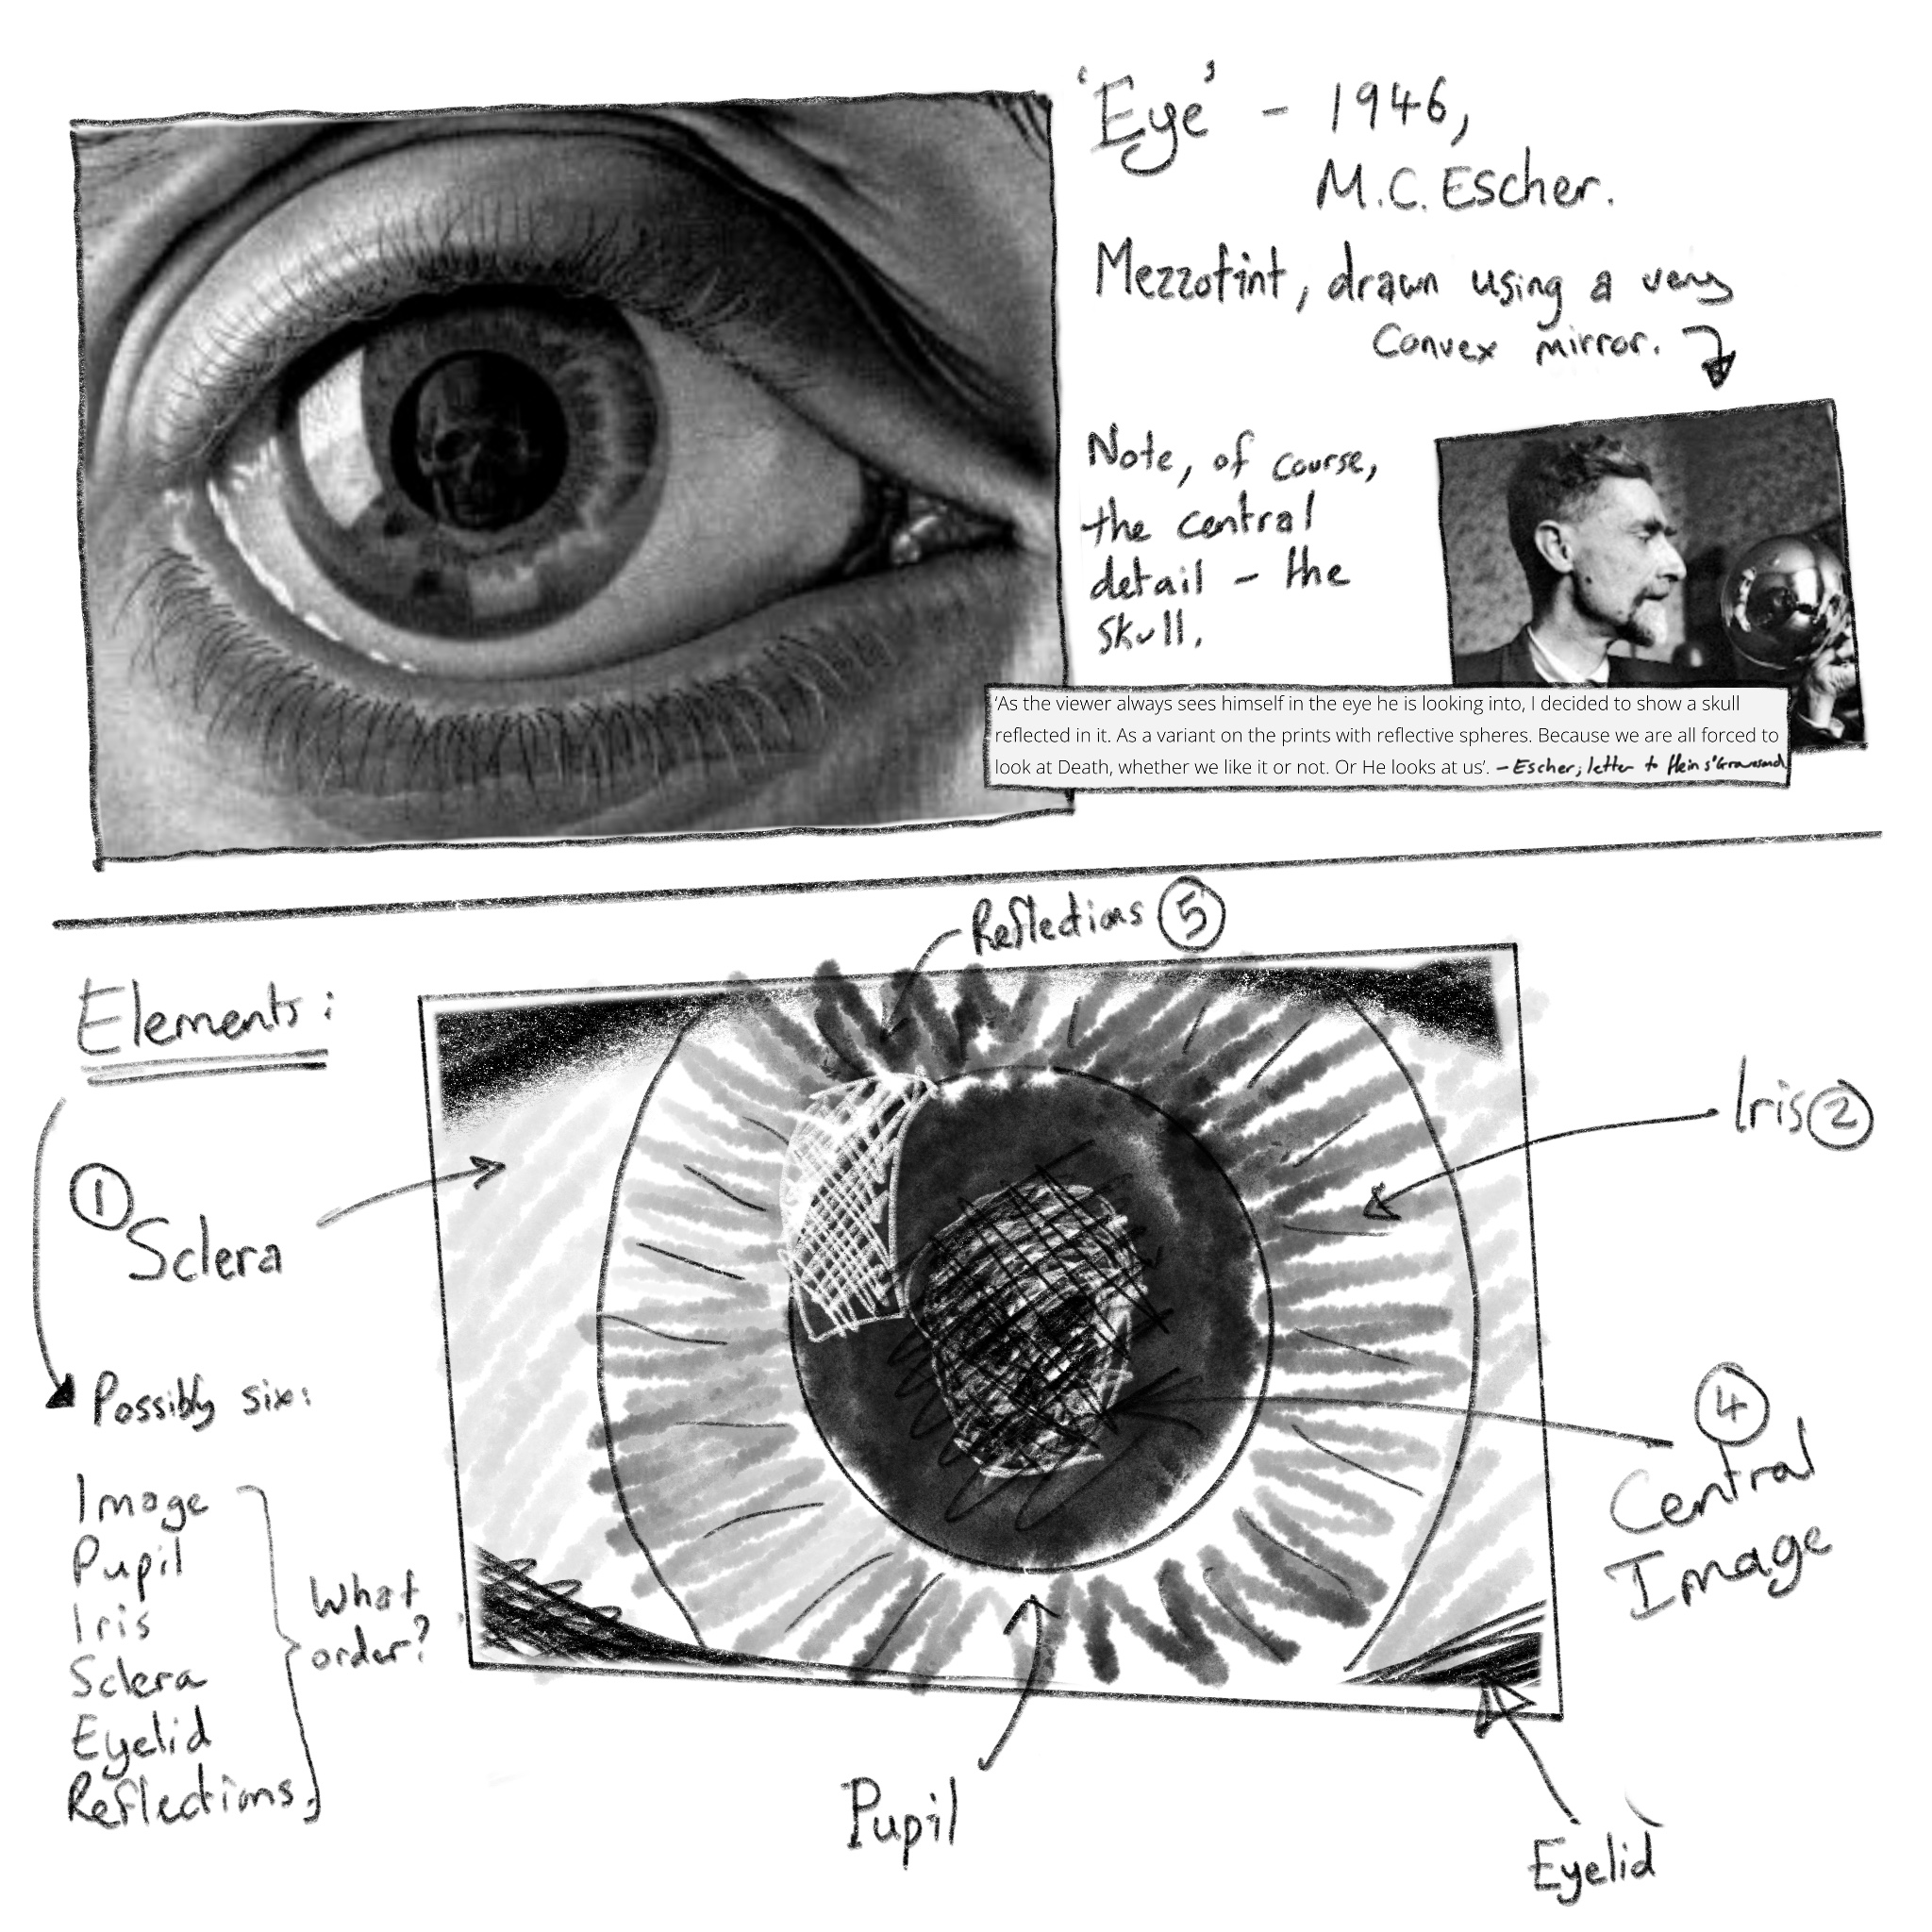 'Eye' - 1946,
M.C. Escher.
Mezzotint, drawn using a very
convex mirror.
Note, of course,
the central
detail - the
skull.
'As the viewer always sees himself in the eye he is looking into, I decided to show a skull
reflected in it. As a variant on the prints with reflective spheres. Because we are all forced to
look at Death, whether we like it or not. Or He looks at us'. - Escher, letter to Hein s'Gravesand
Reflections 5
Elements:
Iris 2
1
Sclera
Possibly six:
4
Central
Image
Image
Pupil
Iris
Sclera
Eyelid
Reflections
What
order?
Pupil
Eyelid